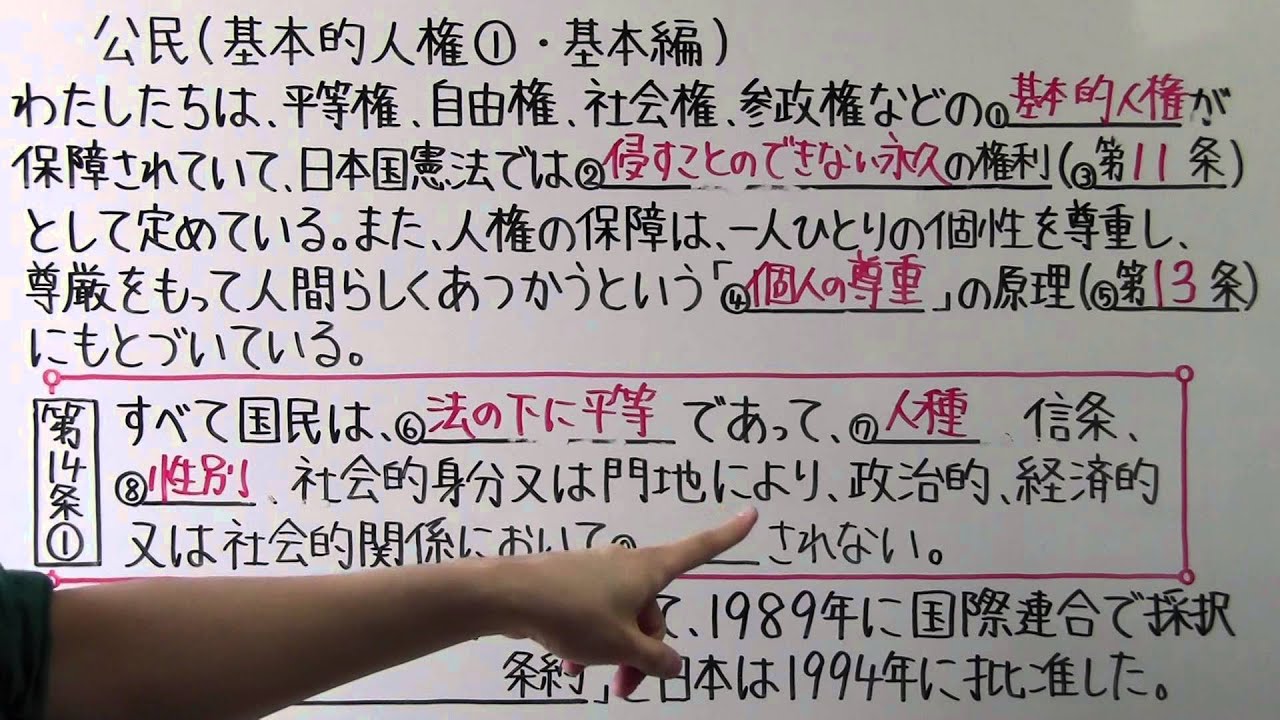 公民(基本的人権①・基本編)
わたしたちは、平等権、自由権、社会権、参政権などの①基本的人権が
保障されていて、日本国憲法では②侵すことのできない永久の権利(③第11条)
として定めている。また、人権の保障は、一人ひとりの個性を尊重し、
尊厳をもって人間らしくあつかうという「④個人の尊重」の原理(⑤第13条)
にもとづいている。
第14条①
すべて国民は、⑥法の下に平等であって、⑦人種、信条、
⑧性別、社会的身分又は門地により、政治的、経済的
又は社会的関係において されない。
て、1989年に国際連合で採択
条約」を日本は1994年に批准した。